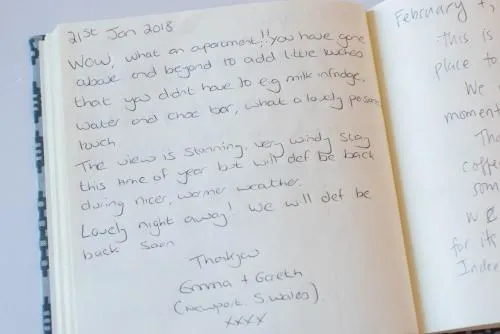 21st Jan 2018
Wow, what an apartment!! You have gone
above and beyond to add little touches
that you didnt have to e.g milk in fridge,
water and choc bar, what a lovely personal
touch
The view is stunning. very windy stay
this time of year but will def be back
during nicer, warmer weather.
Lovely night away! we will def be
back soon
Thankyou
Emma + Gareth
(Newport S Wales).
xxxx
February
this is
place to
We
momen
Tha
coffe
som
we
for it's
Indee